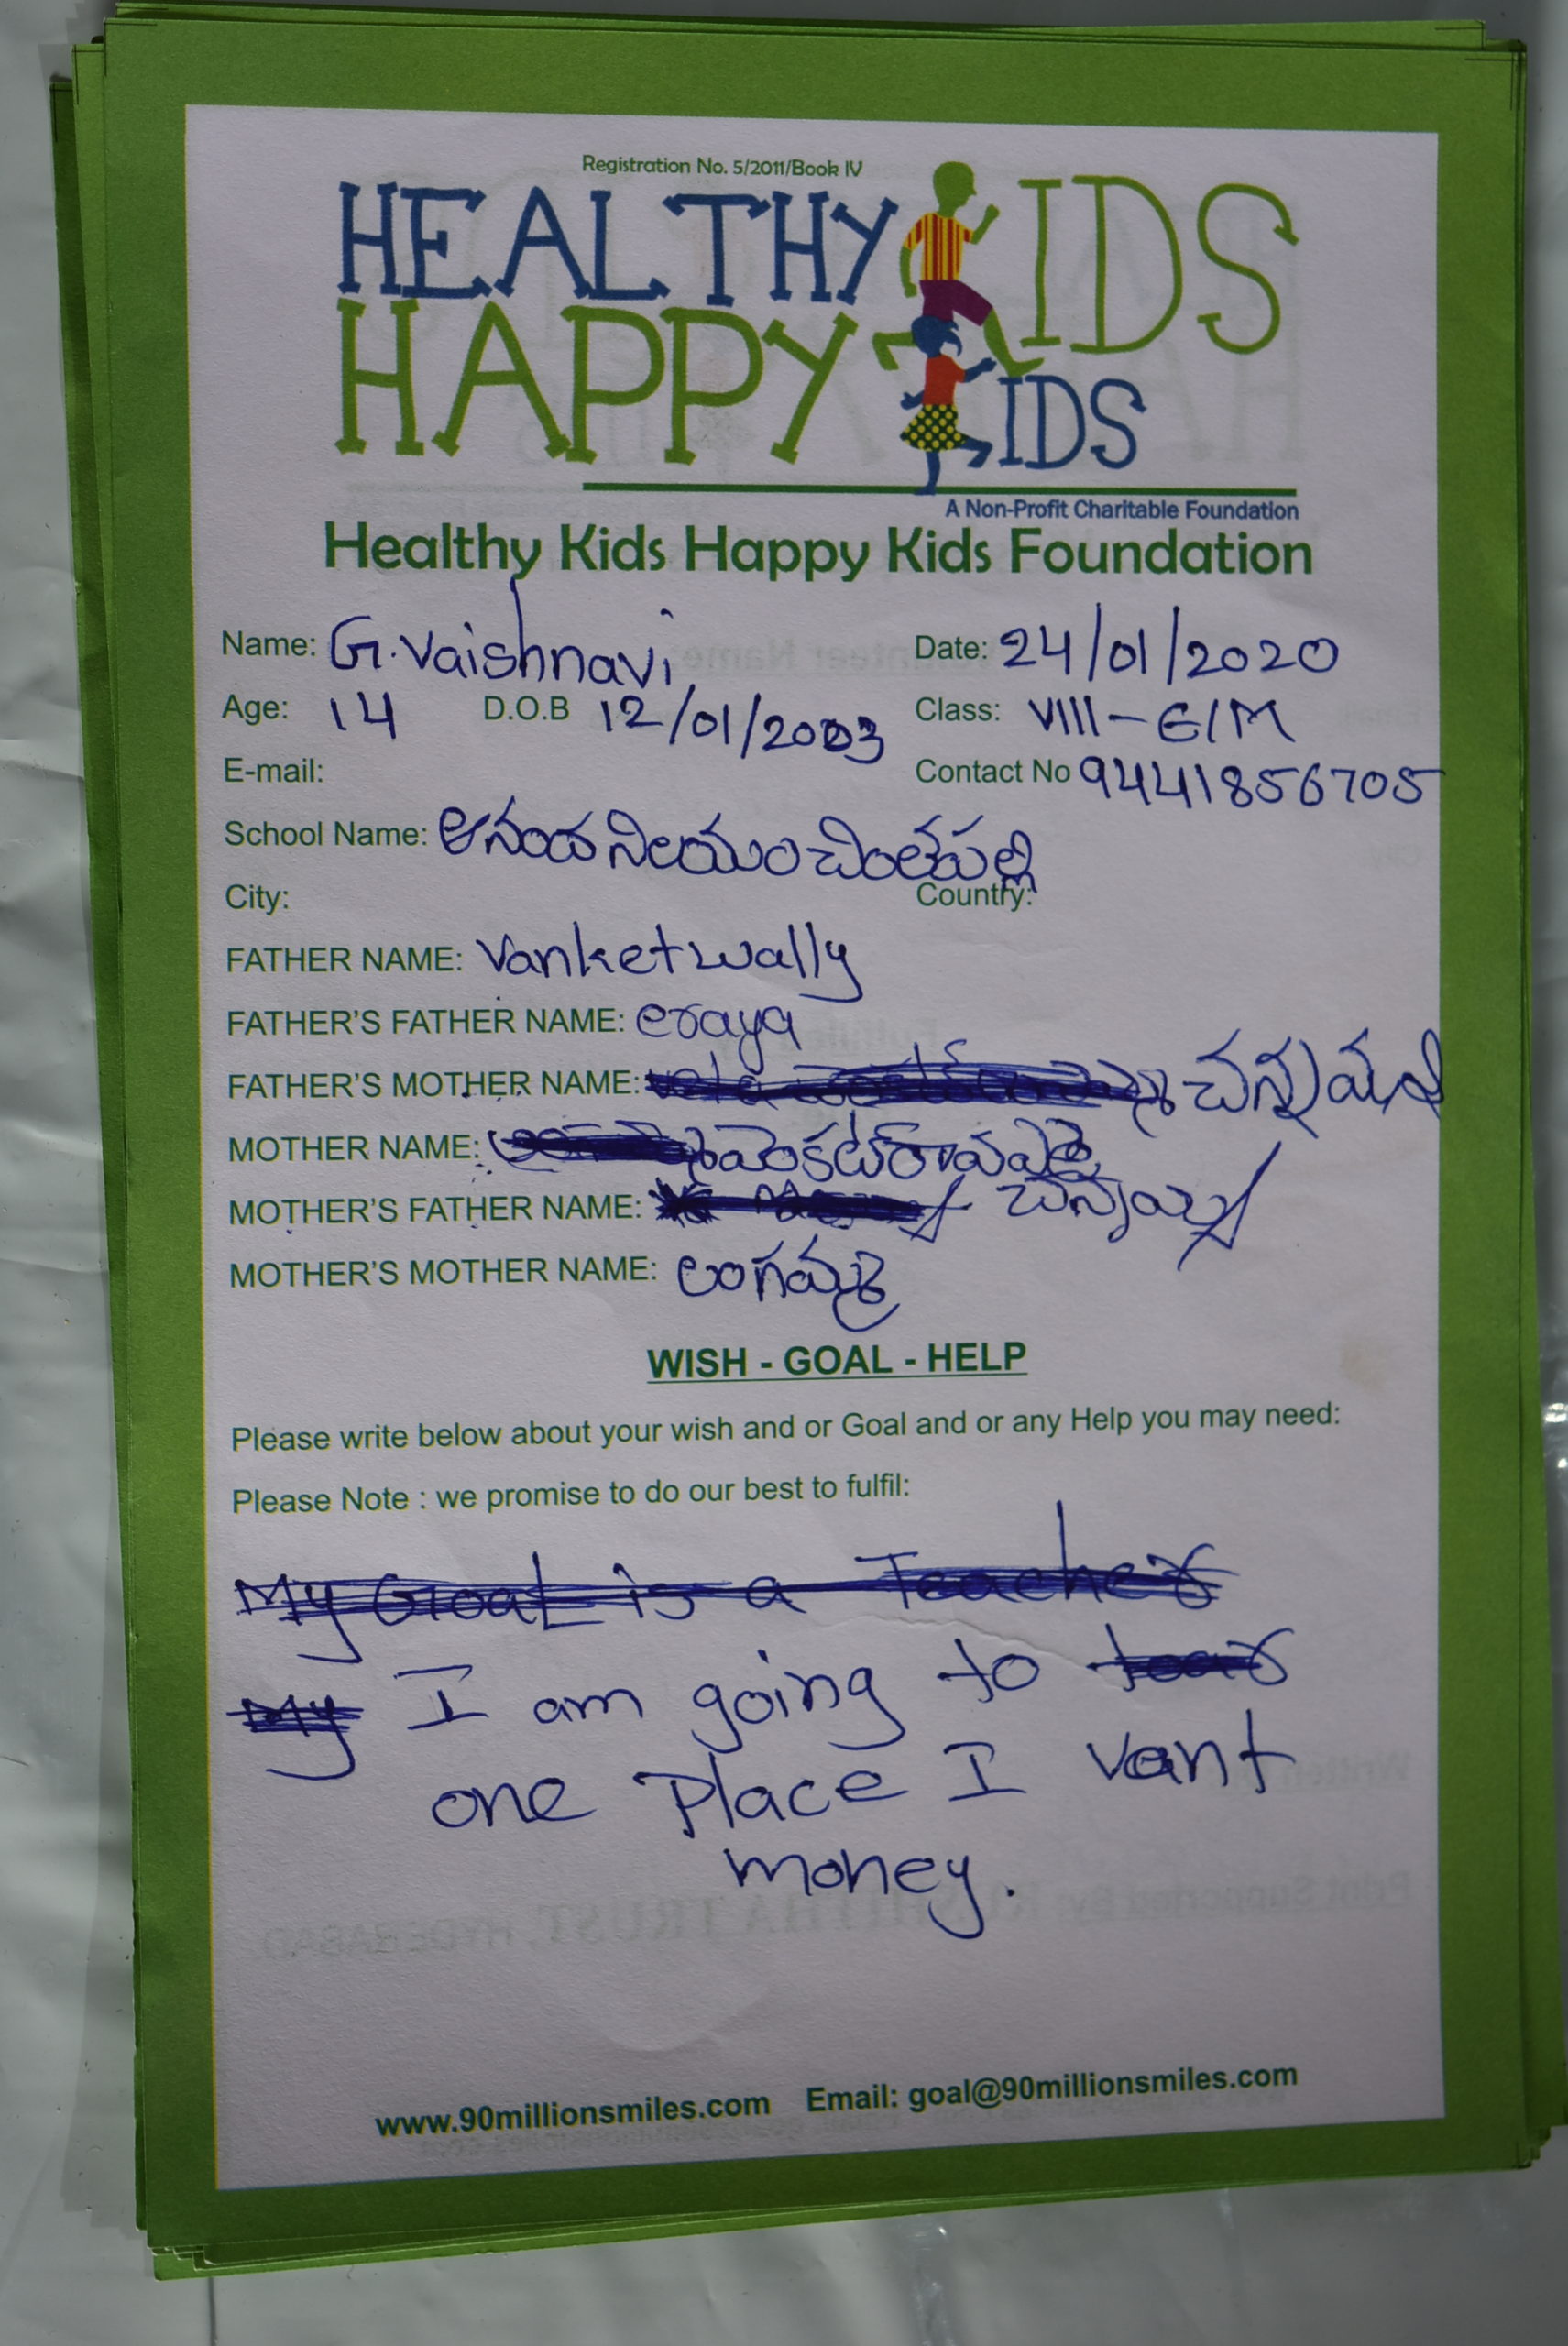 Registration No. 5/2011/Book IV
HEALTHY KIDS
HAPPY KIDS
A Non-Profit Charitable Foundation
Healthy Kids Happy Kids Foundation
Name: G.Vaishnavi Date: 24/01/2020
Age: 14 D.O.B 12/01/2003 Class: VIII-E/M
E-mail: Contact No 94441856705
School Name: ఆనంద నిలయం చింతపల్లి
City: Country:
FATHER NAME: Vanketwally
FATHER'S FATHER NAME: eraya
FATHER'S MOTHER NAME:
MOTHER NAME:
MOTHER'S FATHER NAME: చెన్నయ్య
MOTHER'S MOTHER NAME: లింగమ్మ
WISH - GOAL - HELP
Please write below about your wish and or Goal and or any Help you may need:
Please Note : we promise to do our best to fulfil:
My Goal is a Teacher
My I am going to
one Place I vant
money.
www.90millionsmiles.com Email: goal@90millionsmiles.com